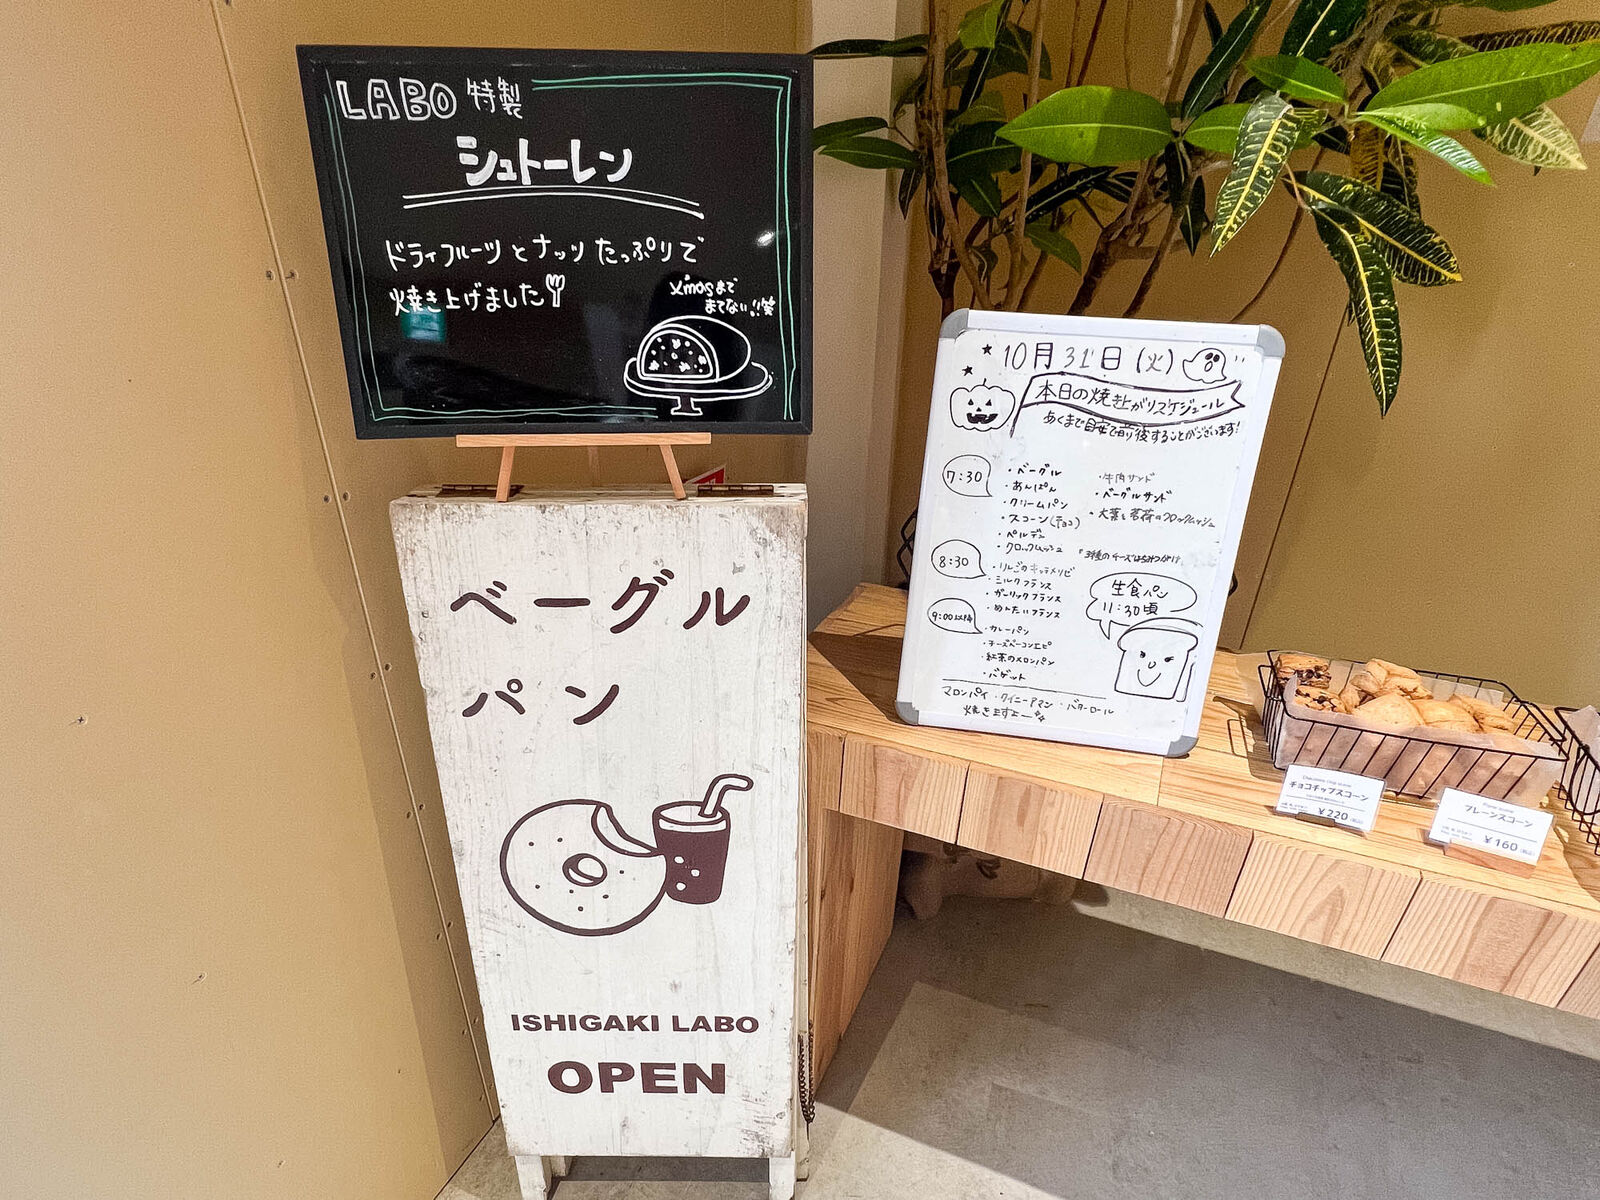 LABO 特製
シュトーレン
ドライフルーツとナッツたっぷりで
焼き上げました
X'masまで
まてない!!笑
ベーグル
パン
ISHIGAKI LABO
OPEN
10月31日(火)
本日の焼き上がりスケジュール
あくまで目安で前後することがございます!
7:30
・ベーグル
・あんぱん
・クリームパン
・スコーン(チョコ)
・ペルデン
・クロックムッシュ
・牛肉サンド
・ベーグルサンド
・大葉と茗荷のクロックムッシュ
8:30
・りんごのキャラメリゼ
・ミルクフランス
・ガーリックフランス
・めんたいフランス
9:00以降
・カレーパン
・チーズベーコンエピ
・紅茶のメロンパン
・バゲット
生食パン
11:30頃
マロンパイ・クイニーアマン・バターロール
焼きますよー
Chocolate chip scone
チョコチップスコーン
¥220
Plane scone
プレーンスコーン
¥160